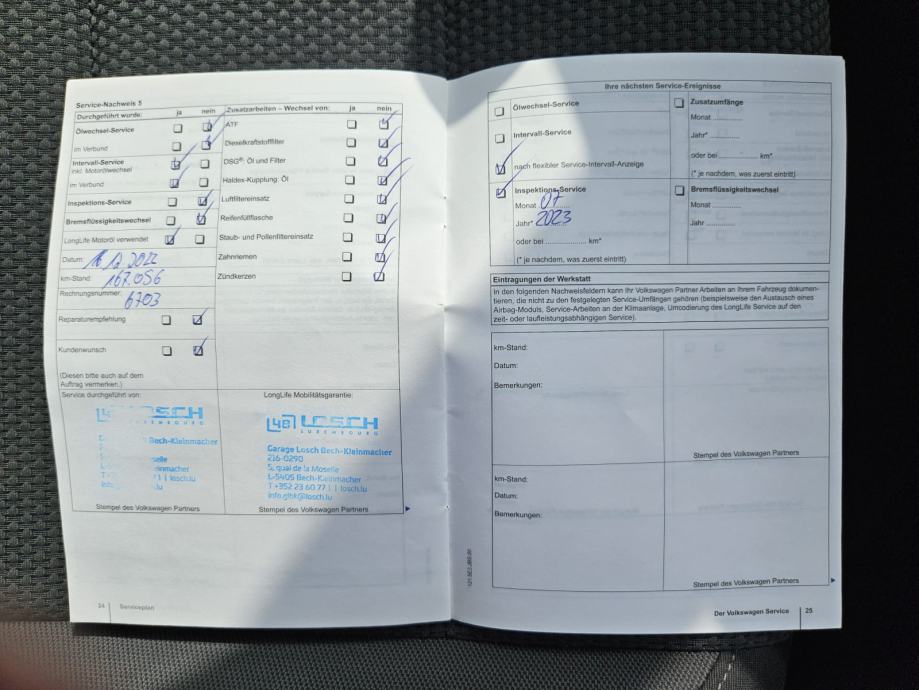 Service-Nachweis 5
Durchgeführt wurde: ja nein
Ölwechsel-Service
im Verbund
Intervall-Service
inkl. Motorölwechsel
im Verbund
Inspektions-Service
Bremsflüssigkeitswechsel
LongLife Motoröl verwendet
Datum: 2022
km-Stand: 167.056
Rechnungsnummer: 6703
Reparaturempfehlung
Kundenwunsch
(Diesen bitte auch auf dem
Auftrag vermerken.)
Service durchgeführt von:
LOSCH
LUXEMBOURG
Bech-Kleinmacher
Moselle
Kleinmacher
losch.lu
Stempel des Volkswagen Partners
Zusatzarbeiten – Wechsel von: ja nein
ATF
Dieselkraftstofffilter
DSG®: Öl und Filter
Haldex-Kupplung: Öl
Luftfiltereinsatz
Reifenfüllflasche
Staub- und Pollenfiltereinsatz
Zahnriemen
Zündkerzen
LongLife Mobilitätsgarantie:
48 LOSCH
LUXEMBOURG
Garage Losch Bech-Kleinmacher
216-0290
5, quai de la Moselle
L-5405 Bech-Kleinmacher
T +352 23 60 77 1 | losch.lu
info.glbk@losch.lu
Stempel des Volkswagen Partners
24 Serviceplan
Ihre nächsten Service-Ereignisse
Ölwechsel-Service
Intervall-Service
nach flexibler Service-Intervall-Anzeige
Inspektions-Service
Monat 07
Jahr* 2023
oder bei .............. km*
(* je nachdem, was zuerst eintritt)
Zusatzumfänge
Monat ..........
Jahr* ..........
oder bei .............. km*
(* je nachdem, was zuerst eintritt)
Bremsflüssigkeitswechsel
Monat ..........
Jahr ..........
Eintragungen der Werkstatt
In den folgenden Nachweisfeldern kann Ihr Volkswagen Partner Arbeiten an Ihrem Fahrzeug dokumen-
tieren, die nicht zu den festgelegten Service-Umfängen gehören (beispielsweise den Austausch eines
Airbag-Moduls, Service-Arbeiten an der Klimaanlage, Umcodierung des LongLife Service auf den
zeit- oder laufleistungsabhängigen Service).
km-Stand:
Datum:
Bemerkungen:
Stempel des Volkswagen Partners
km-Stand:
Datum:
Bemerkungen:
Stempel des Volkswagen Partners
Der Volkswagen Service 25